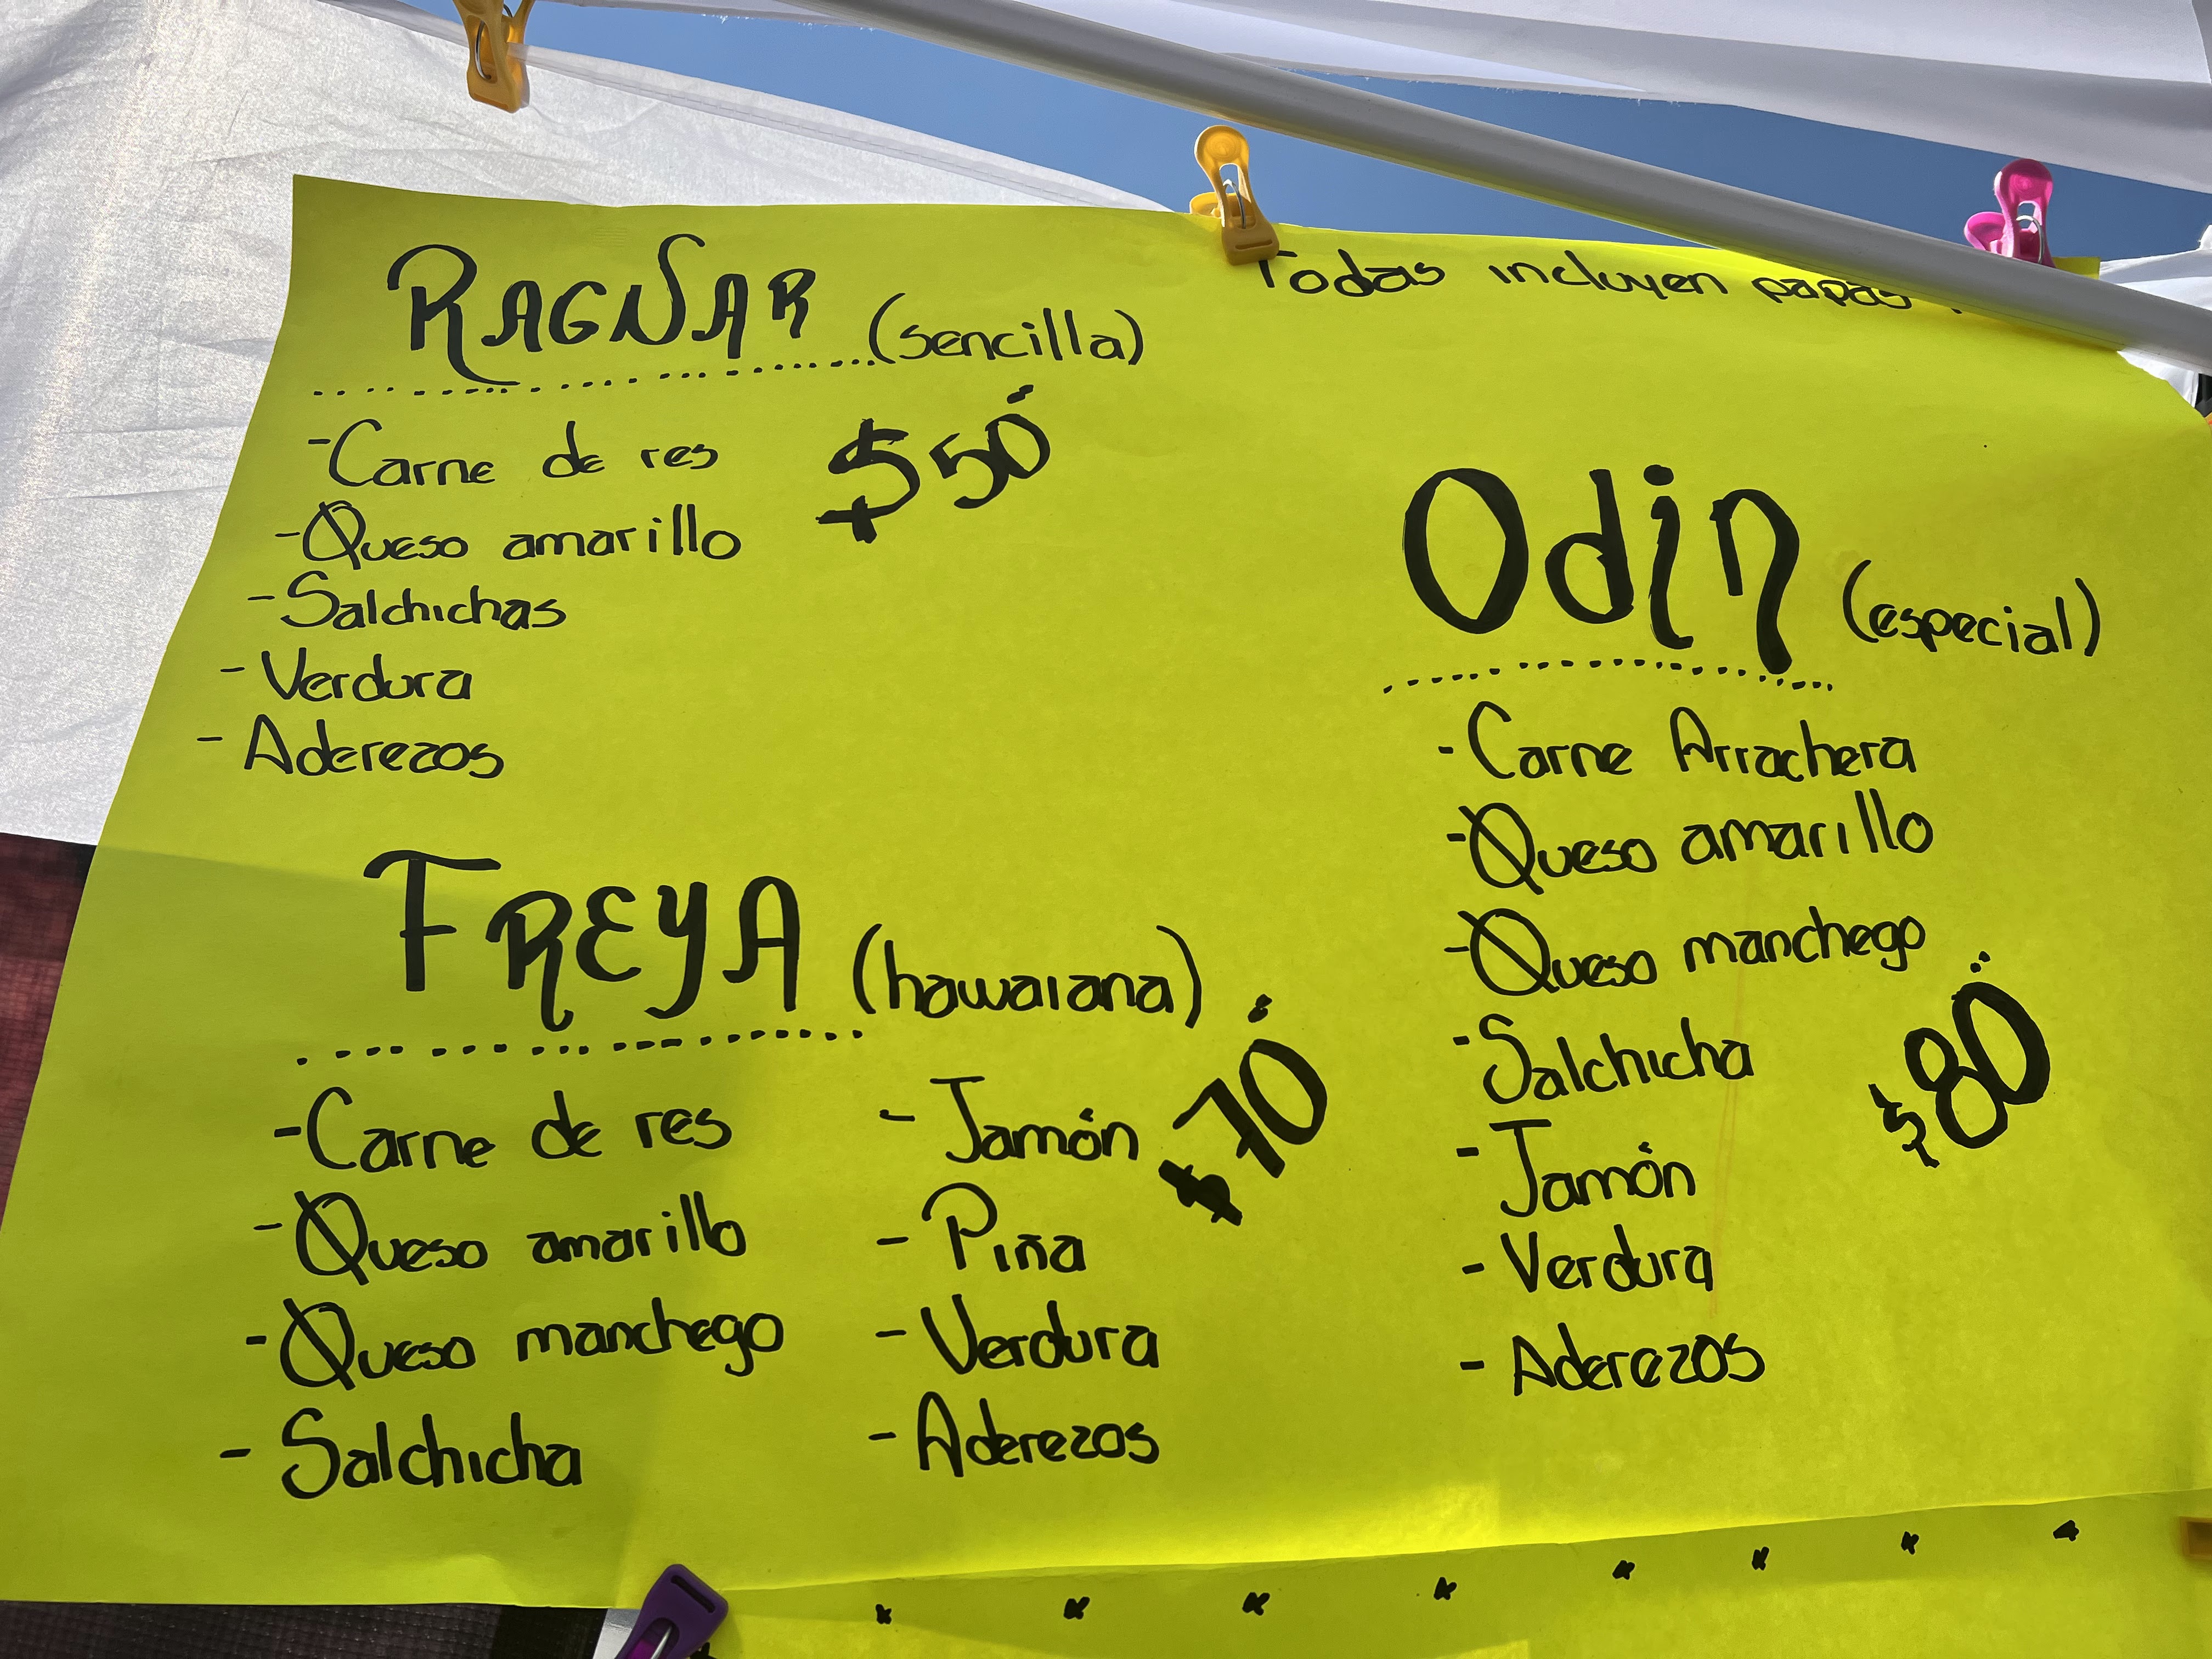 Todas incluyen papas
RAGNAR (sencilla)
- Carne de res
$50
- Queso amarillo
- Salchichas
- Verdura
- Aderezos
FREYA (hawaiana)
- Carne de res
- Queso amarillo
- Queso manchego
- Salchicha
- Jamón
- Piña
- Verdura
- Aderezos
$70
Odin (especial)
- Carne Arrachera
- Queso amarillo
- Queso manchego
- Salchicha
- Jamón
- Verdura
- Aderezos
$80